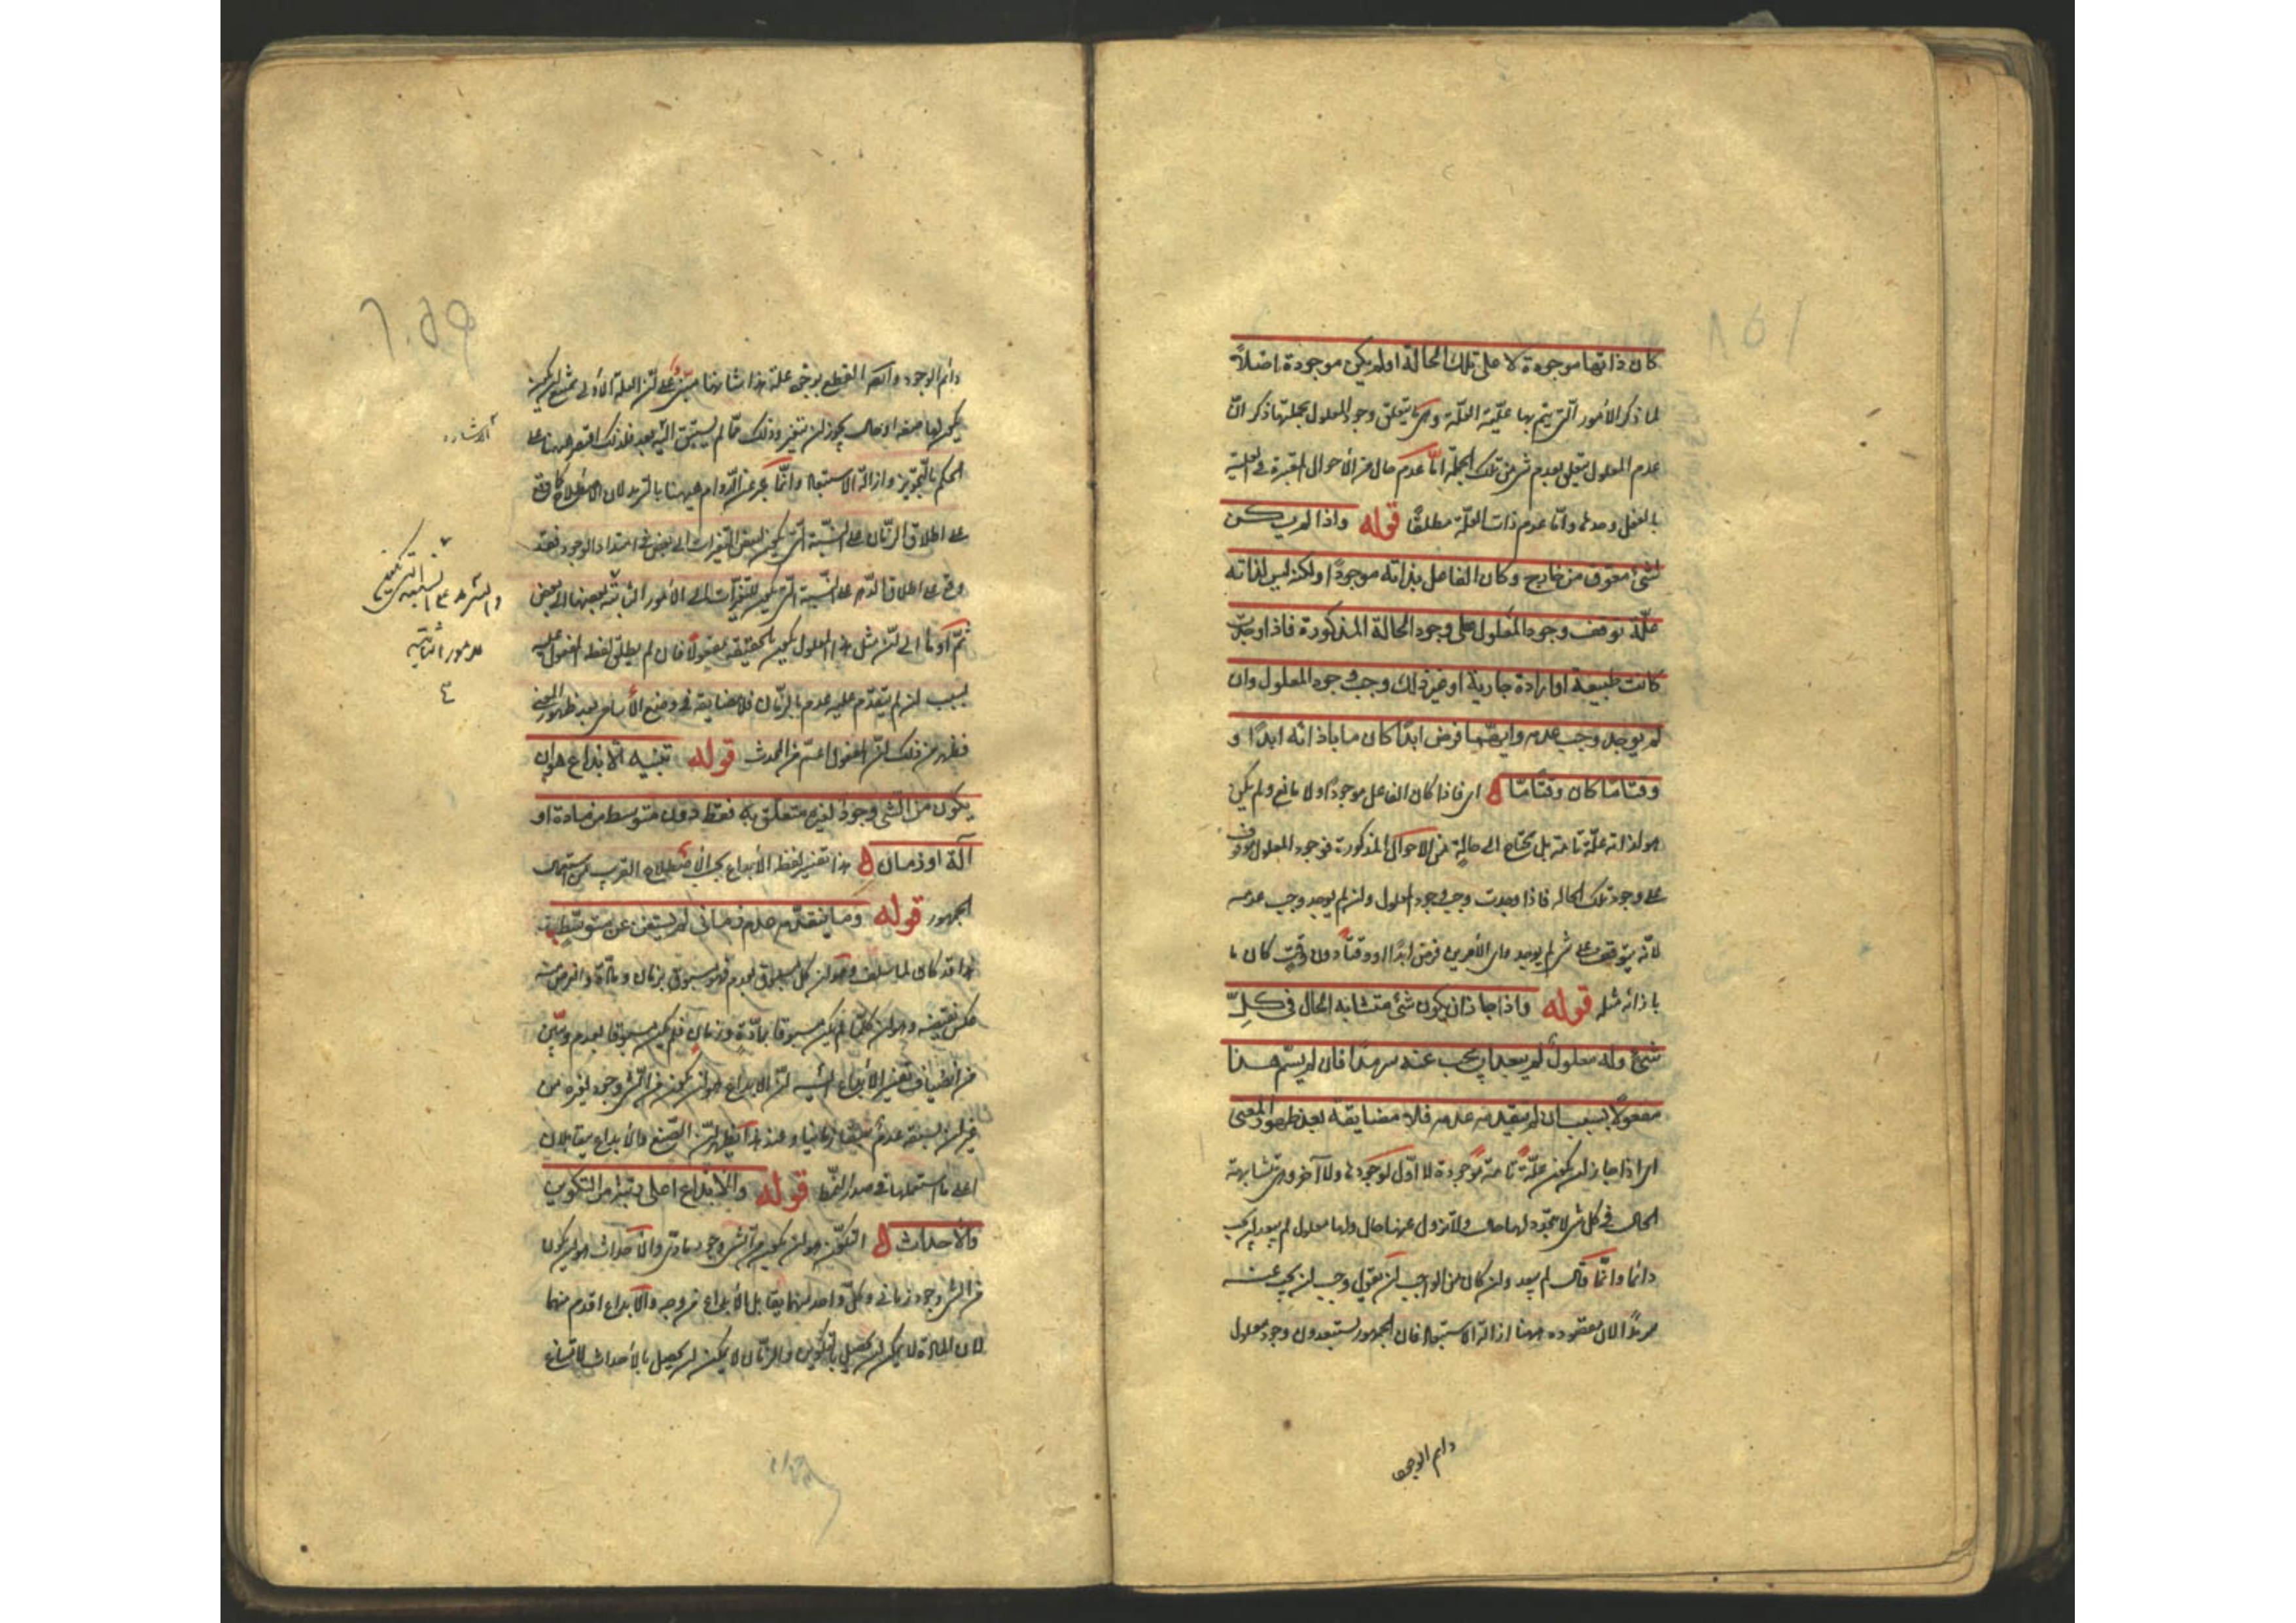 كان ذاتها موجودة لا على تلك الحالة او لم يكن موجودة اصلاً
لما ذكر الأمور التي يتم بها علّية العلّة وهى ما يتعلق وجود المعلول بجملتها ذكر انّ
عدم المعلول يتعلق بعدم شئ من تلك الجملة امّا عدم حال من الأحوال المعتبرة فى العلية
بالفعل وحدها وامّا عدم ذات العلّة مطلقًا قوله واذا لم يكن
لشئ معوق من خارج وكان الفاعل بذاته موجودًا ولكنه ليس لذاته
علّة توقف وجود المعلول على وجود الحالة المذكورة فاذا وجدت
كانت طبيعة او ارادة جازية او غير ذلك وجب وجود المعلول وان
لم يوجد وجب عدمه وايهما فرض ابدًا كان ما باذائه ابدًا و
وقتًا مّا كان وقتًا مّا اى فاذا كان الفاعل موجودًا ولا مانع ولم يكن
هو لذاته علّة تامة بل يحتاج الى حالة من الاحوال المذكورة فوجود المعلول موقوف
على وجود تلك الحالة فاذا وجدت وجب وجود المعلول وان لم يوجد وجب عدمه
لانه يتوقف على شئ لم يوجد واى الأمرين فرض ابدًا او وقتًا دون وقت كان ما
باذائه مثله قوله واذا جاز ان يكون شئ متشابه الحال فى كلّ
شئ وله معلول لم يبعد ان يجب عنه سرمدًا فان لم يسمّ هذا
مفعولاً بسبب ان لم يتقدمه عدمه فلا مضايقة بعد ظهور المعنى
اى اذا جاز ان يكون علّة تامة موجودة لا اوّل لوجودها ولا آخر وهى متشابهة
الحال فى كل شئ لا يتجدد لها حال ولا تزول عنها حال ولها معلول لم يبعد ان يجب
دائما وانّما قال لم يبعد وان كان من الواجب ان يقول وجب ان يجب عنه
سرمدًا لان مقصوده ههنا ازالة الاستبعاد فان الجمهور يستبعدون وجود معلول
دايم الوجود
دائم الوجود وايضا القطع بوجود علة هذا شانها مبنى على ان العلة الأولى يمتنع ان يكون
يكون لها صفة او حال يجوز ان يتغير وذلك ممّا لم يسبق اليه بعد فلذلك اقتصر ههنا على
الحكم بالتجويز وازالة الاستبعاد وانّما عبر عن الدوام ههنا بالسرمد لان الاصطلاح كما وقع
على اطلاق الزمان على النسبة التى يكون لبعض المتغيرات الى بعض فى امتداد الوجود فقد
وقع على اطلاق الدهر على النسبة التى يكون للمتغيرات الى الأمور الثابتة بعضها الى بعض
ثمّ اومأ الى ان مثل هذا المعلول يكون بالحقيقة مفعولاً فان لم يطلق لفظ المفعول عليه
بسبب انه لم يتقدم عليه عدم بالزمان فلا مضايقة فى وضع الأسامى بعد ظهور المعنى
فظهر من ذلك ان المفعول اعم من المحدث قوله تنبيه الابداع هو ان
يكون من الشئ وجود لغيره متعلق به فقط دون متوسط من مادة او
آلة او زمان هذا تفسير لفظ الأبداع بحسب الاصطلاح القريب من استعمال
الجمهور قوله وما يتقدّمه عدم زمانى لم يستغن عن متوسط
هذا قد كان لما سلف وهو ان كل مسبوق بعدم فهو مسبوق بزمان ومادة والغرض منه
عكس نقيضه وهو ان كلّما لم يكن مسبوقا بمادّة وزمان فلم يكن مسبوقا بعدم وتبين
من انضياف تفسير الأبداع اليه انّ الابداع هو ان يكون من الشئ وجود لغيره من
غير ان يسبقه عدم سبقا زمانيا وعند هذا يظهر انّ الصنع والأبداع متقابلان
على ما استعملهما فى صدر النمط قوله والأبداع اعلى رتبة من التكوين
والأحداث التكوين هو ان يكون من الشئ وجود مادى والأحداث هو ان يكون
من الشئ وجود زمانى وكلّ واحد منهما يقابل الأبداع من وجه والأبداع اقدم منهما
لان المادة لا يمكن ان يحصل بالتكوين والزمان لا يمكن ان يحصل بالأحداث لامتناع